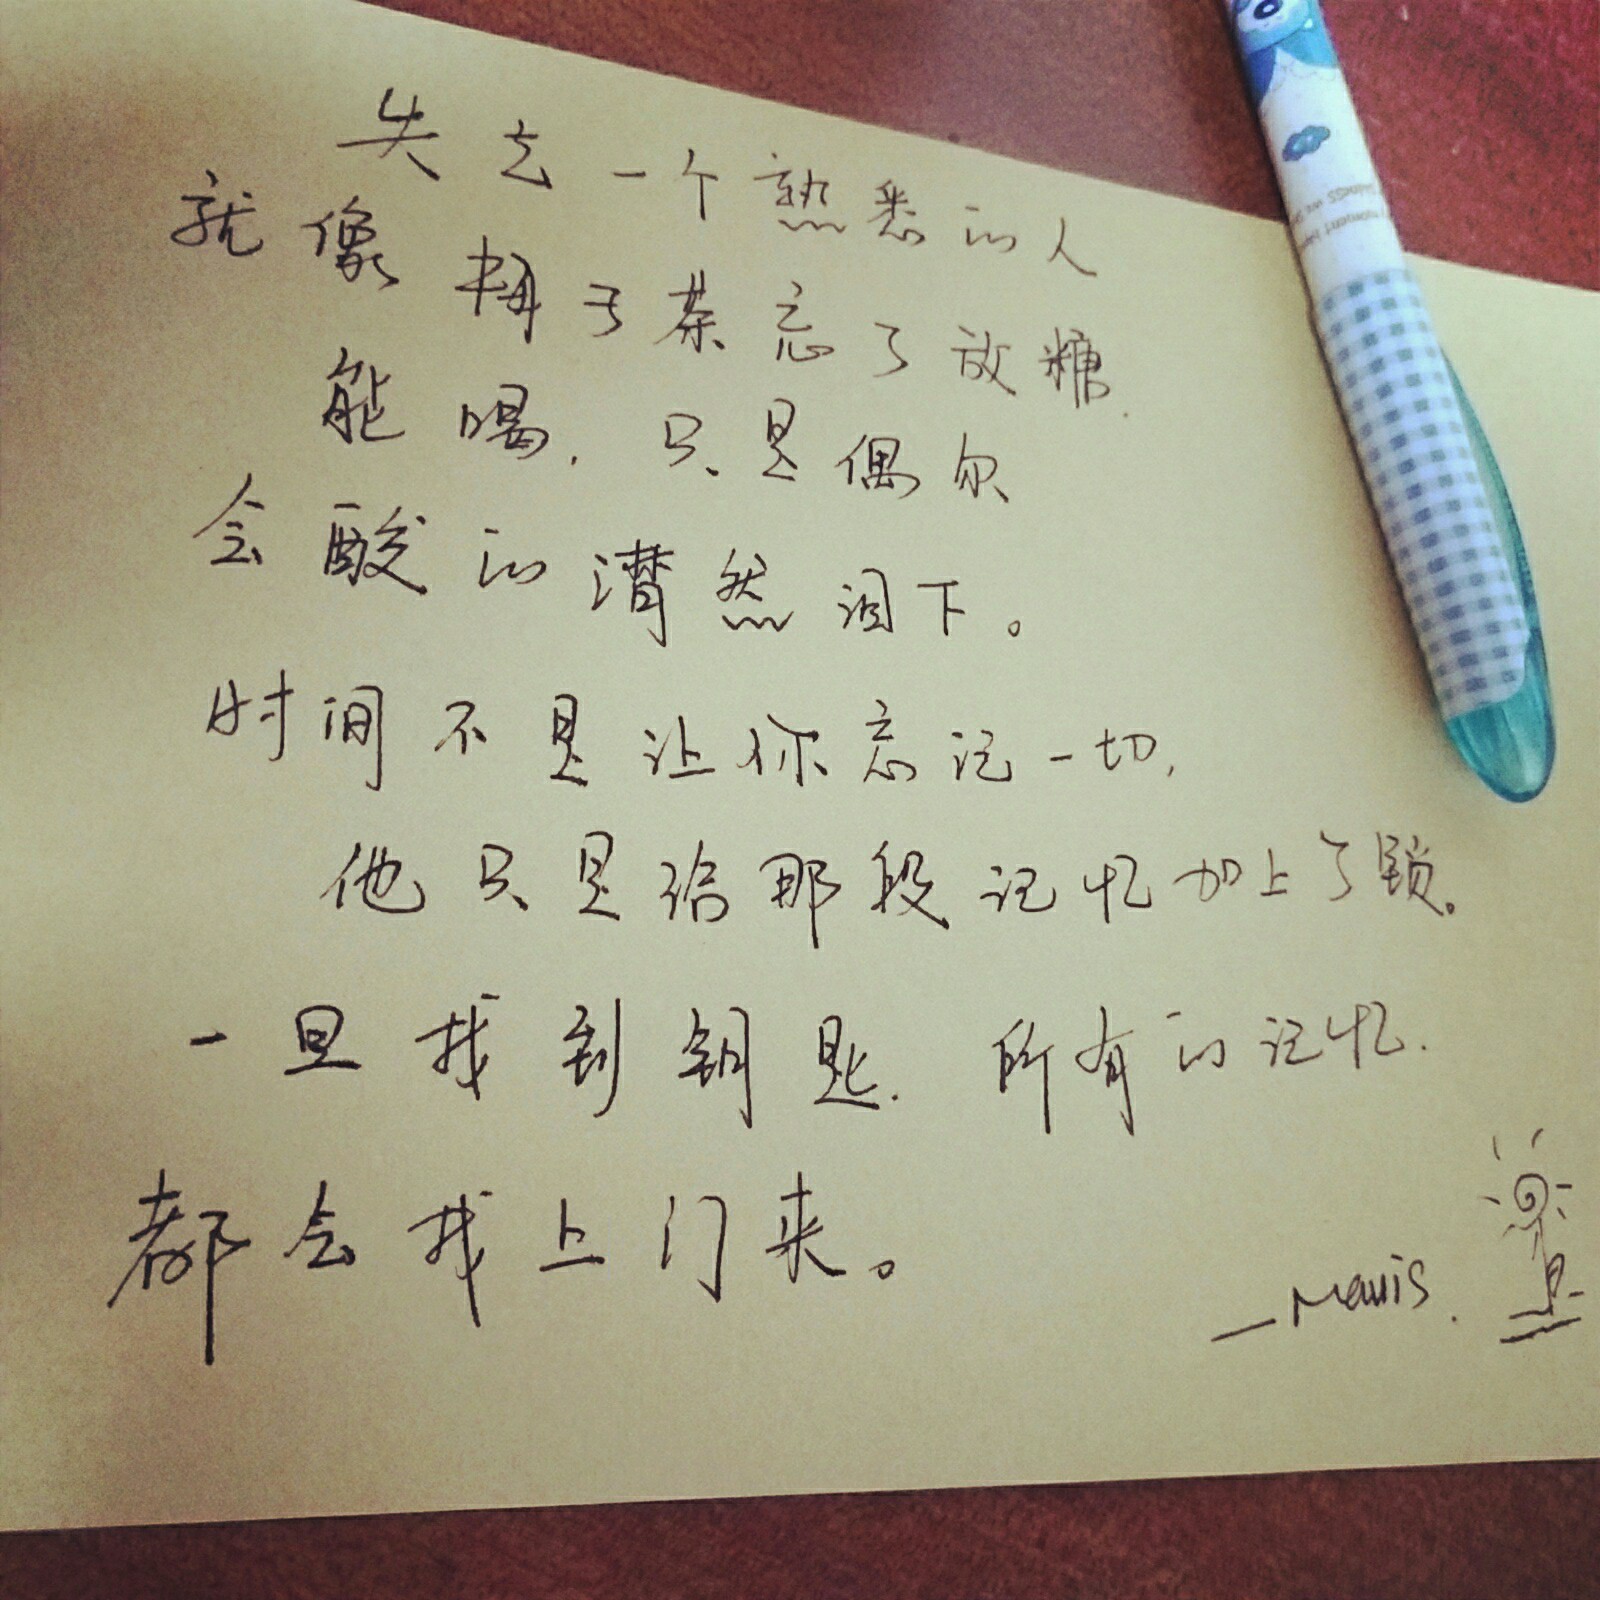 失去一个熟悉的人
就像梅子茶忘了放糖.
能喝,只是偶尔
会酸的潸然泪下。
时间不是让你忘记一切,
他只是给那段记忆加上了锁。
一旦找到钥匙.所有的记忆.
都会找上门来。
—Mavis.